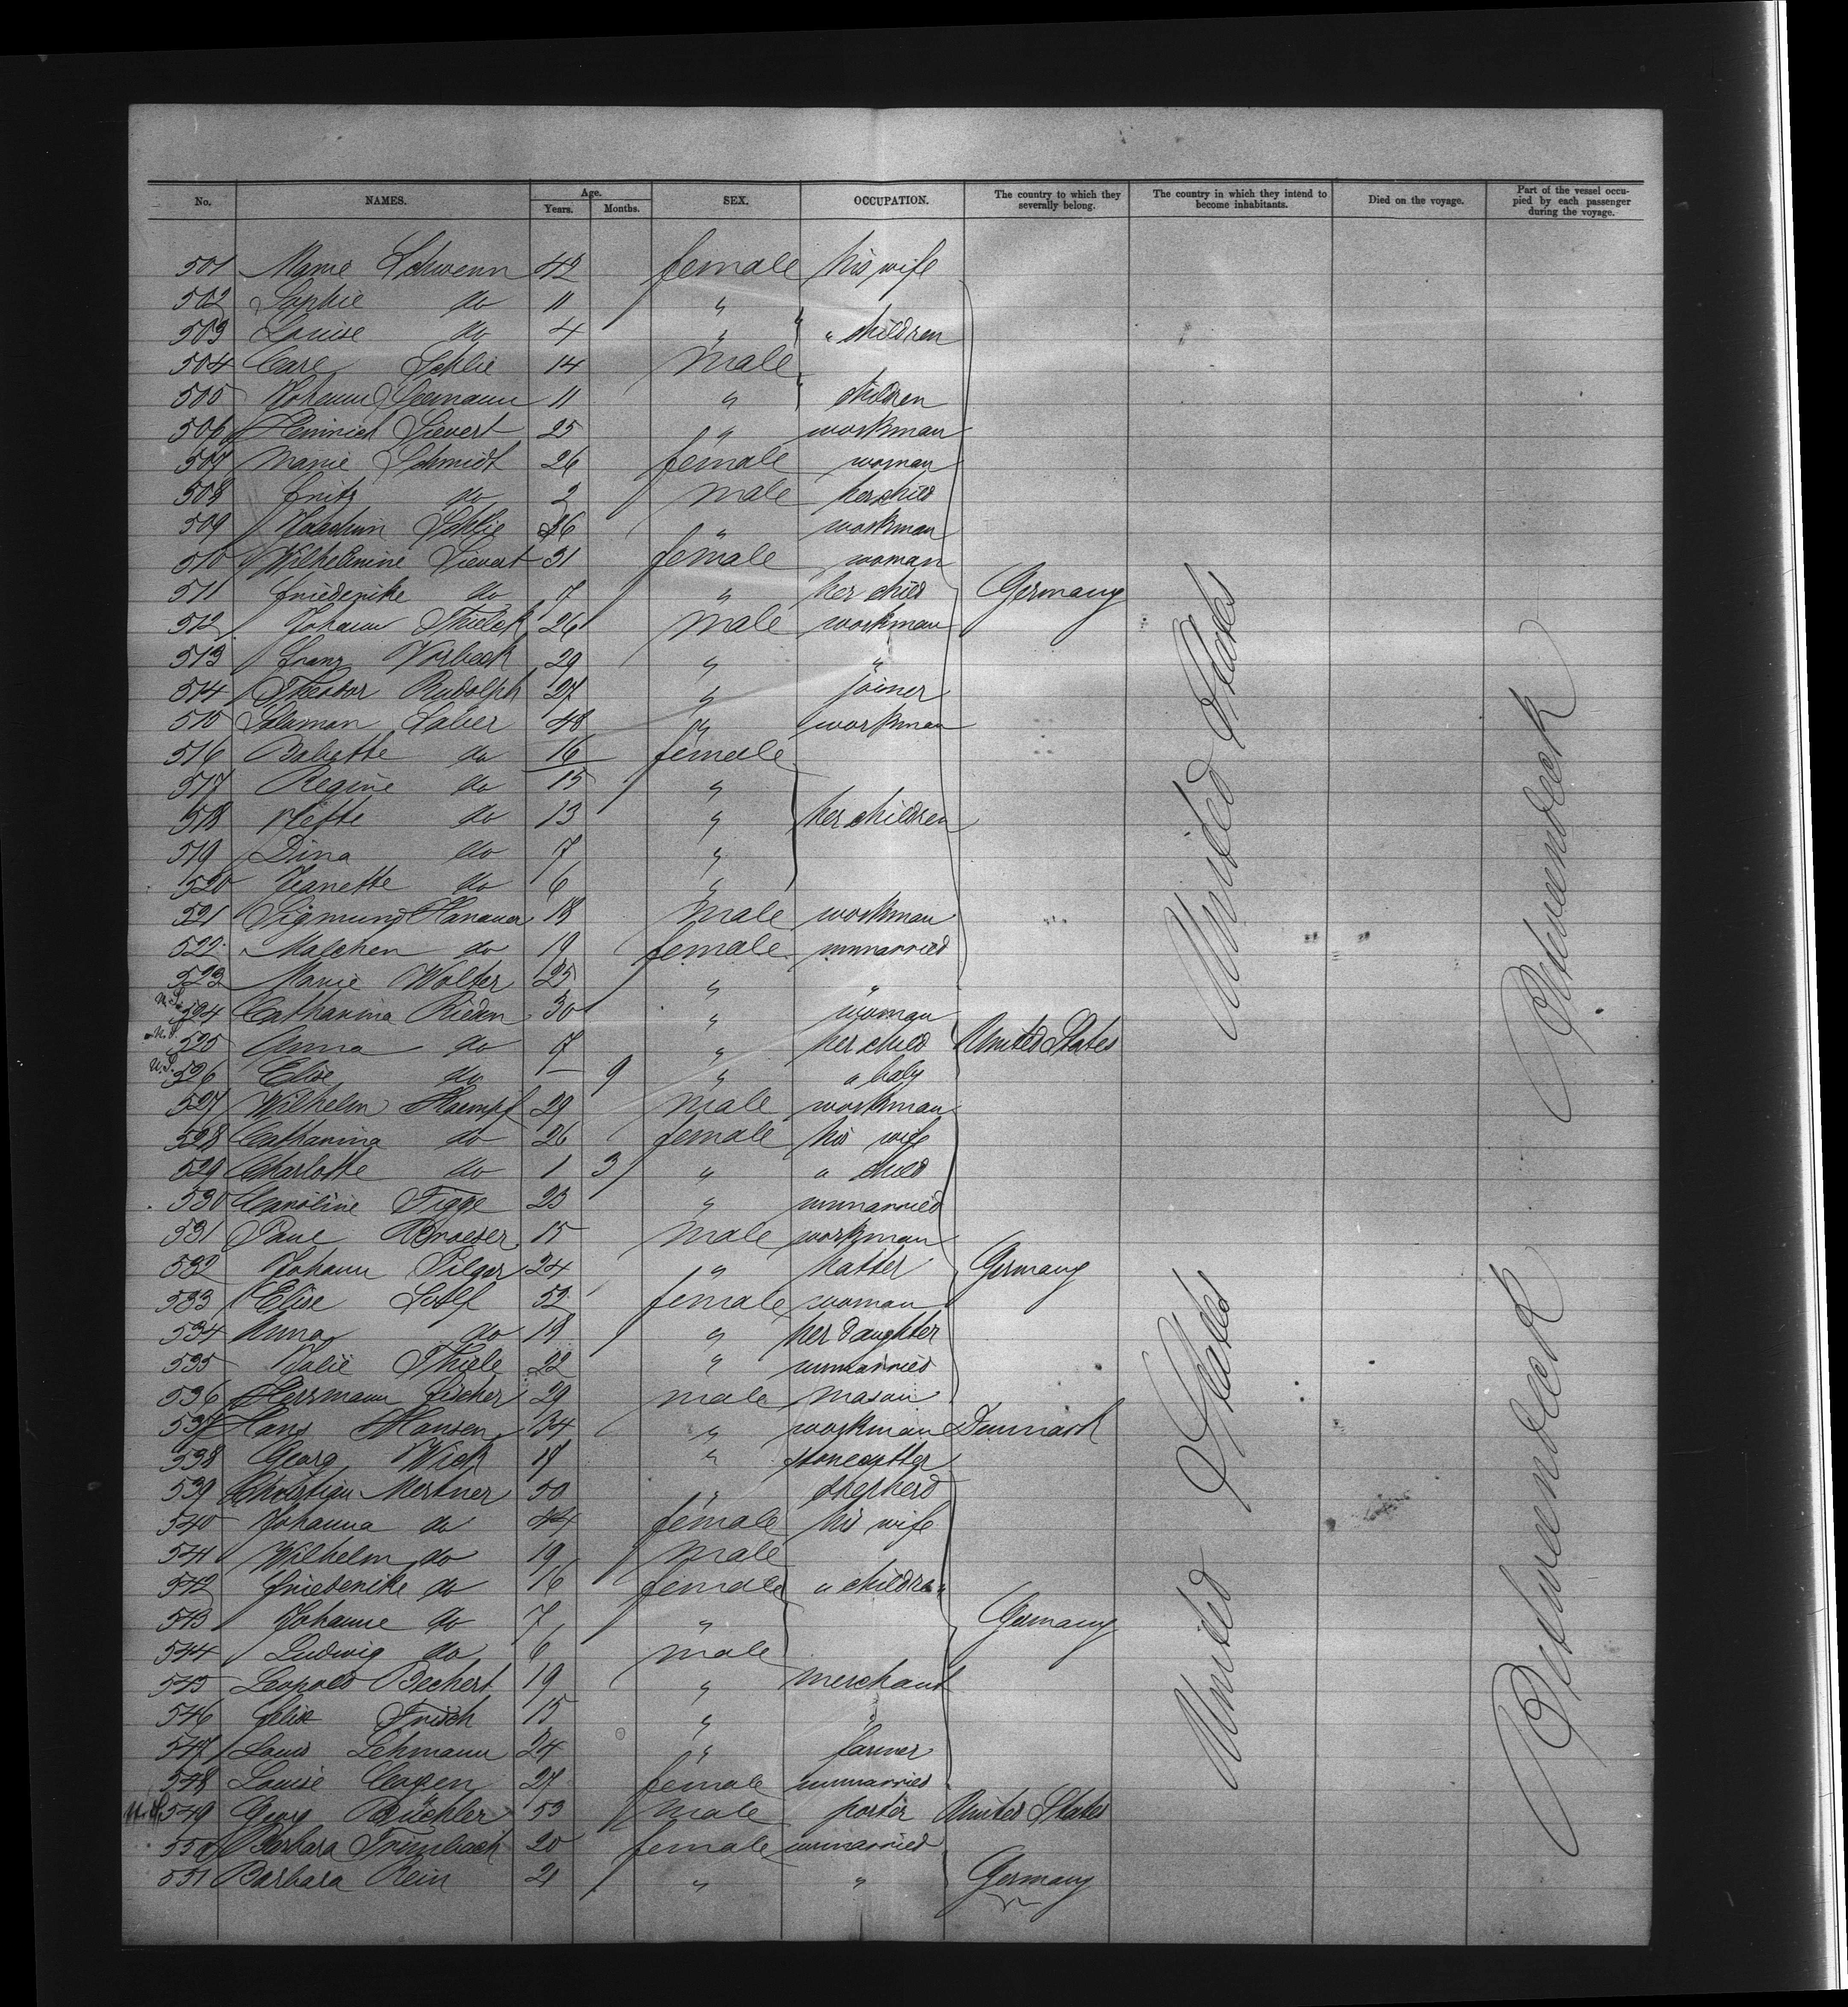 No. NAMES. Age. Years. Months. SEX. OCCUPATION. The country to which they severally belong. The country in which they intend to become inhabitants. Died on the voyage. Part of the vessel occupied by each passenger during the voyage.
501 Marie Schwenn 42 female his wife
502 Sophie do 11 "
503 Louise do 4 " " children
504 Carl Schlie 14 male
505 Johann Germann 11 " children
506 Heinrich Sievert 25 " workman
507 Marie Schmidt 26 female woman
508 Fritz do 2 male her child
509 Joachim Schlie 26 " workman
510 Wilhelmine Sievert 31 female woman
511 Friederike do 7 " her child Germany
512 Johann Thielck 26 male workman
513 Franz Vorbeck 29 " "
514 Theodor Rudolph 27 " joiner
515 Salaman Saber 48 " workman
516 Babette do 16 female
517 Regine do 15 "
518 Nette do 13 " her children
519 Dina do 7 "
520 Jeanette do 6 "
521 Sigmund Hanauer 18 male workman
522 Malchen do 19 female unmarried
523 Marie Wolter 25 " "
U.S. 524 Catharina Riedm 30 " woman
U.S. 525 Anna do 7 " her child United States
U.S. 526 Elise do – 9 " " baby
527 Wilhelm Haempf 29 male workman
528 Catharina do 26 female his wife
529 Charlotte do 1 3 " " child
530 Caroline Figge 23 " unmarried
531 Paul 15 male workman
532 Johann Pilger 24 " hatter Germany
533 Elise 52 female woman
534 Anna do 18 " her daughter
535 Julie Thiele 22 " unmarried
536 Herrmann Fischer 29 male mason
537 Hans Hansen 34 " workman Denmark
538 Georg Wick 18 " stonecutter
539 Christian Mertner 50 " shepherd
540 Johanna do 44 female his wife
541 Wilhelm do 19 male
542 Friederike do 16 female " children
543 Johanne do 7 " Germany
544 Ludwig do 6 male
545 Leopold Bechert 19 " merchant
546 Felix Frisch 15 " "
547 Louis Lehmann 24 " farmer
548 Louise Cagen 27 female unmarried
U.S. 549 Georg Büchler 53 male porter United States
550 Barbara Trimbach 20 female unmarried
551 Barbara Rein 21 " " Germany
United States
United States
Betweendeck
Betweendeck